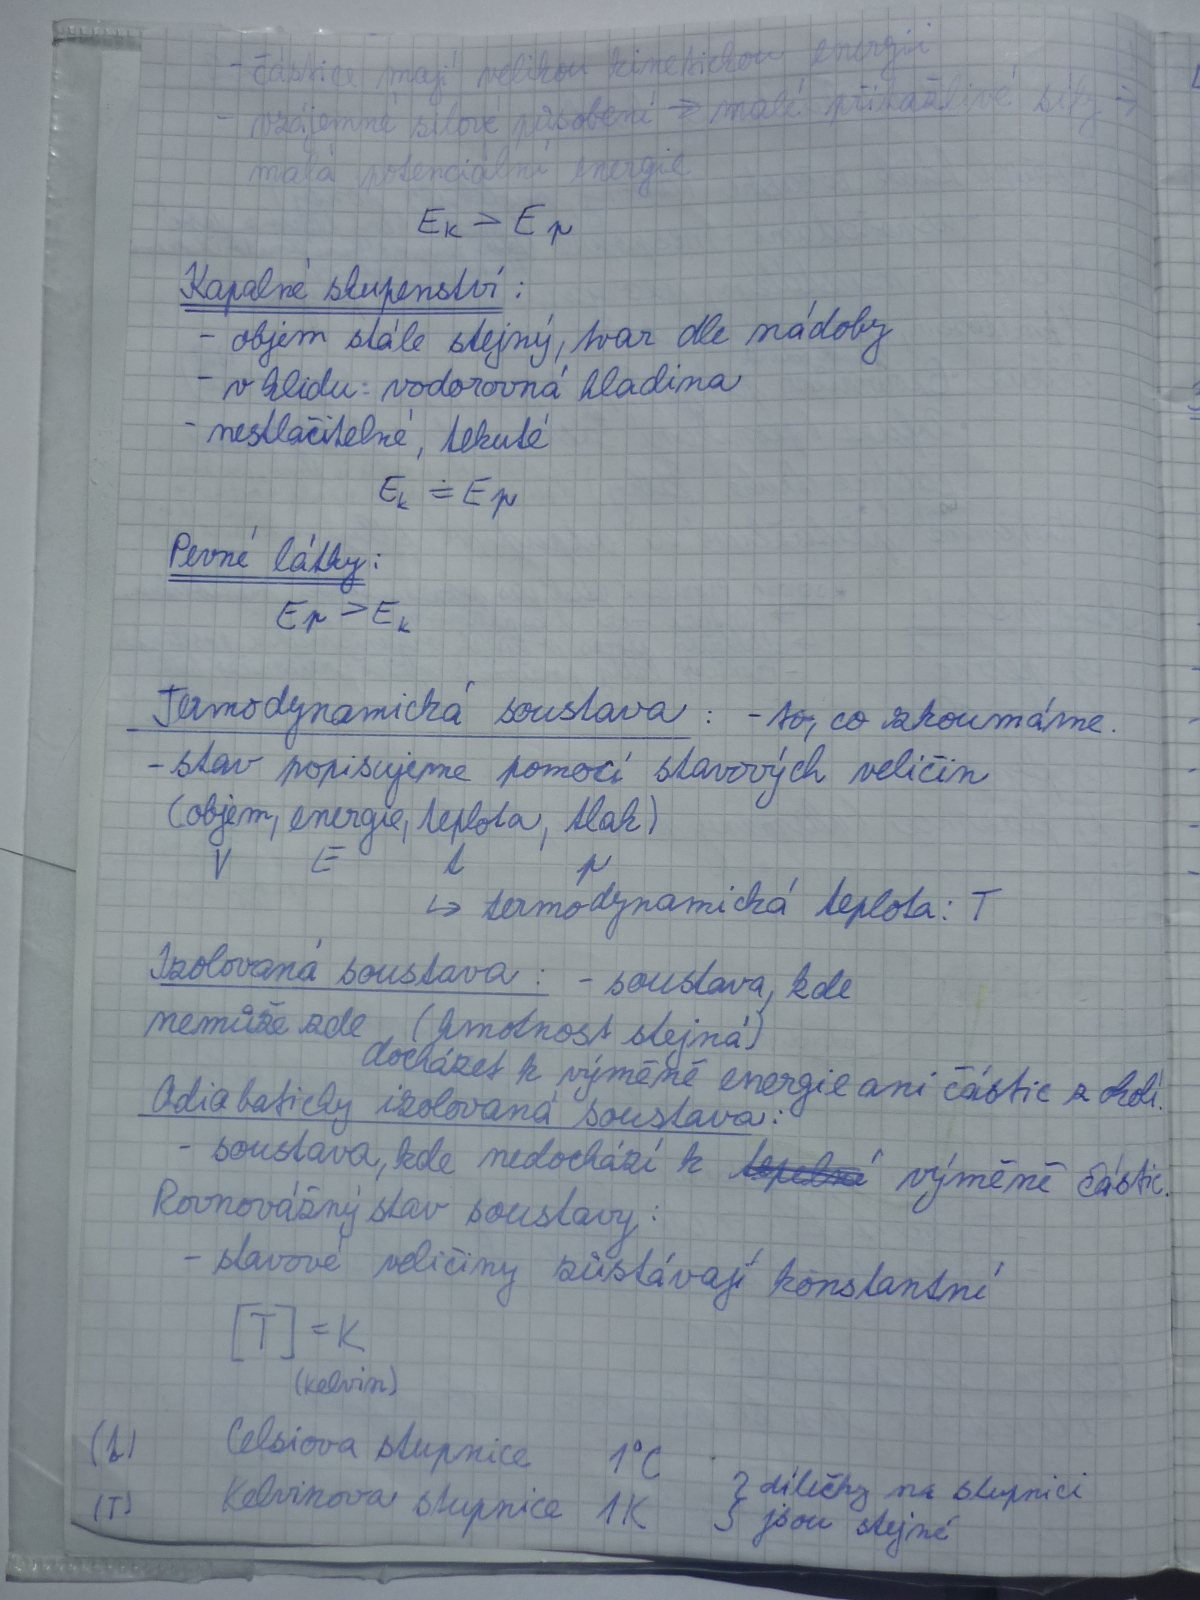 - částice mají velikou kinetickou energii
- vzájemné silové působení → malé přitažlivé síly →
malá potenciální energie
Ek > Ep
Kapalné skupenství:
- objem stále stejný, tvar dle nádoby
- v klidu: vodorovná hladina
- nestlačitelné, tekuté
Ek ≐ Ep
Pevné látky:
Ep > Ek
Termodynamická soustava: - to, co zkoumáme.
- stav popisujeme pomocí stavových veličin
(objem, energie, teplota, tlak)
V E t p
↳ termodynamická teplota: T
Izolovaná soustava: - soustava, kde
nemůže zde (hmotnost stejná)
docházet k výměně energie ani částic z okolí.
Adiabaticky izolovaná soustava:
- soustava, kde nedochází k tepelné výměně částic.
Rovnovážný stav soustavy:
- stavové veličiny zůstávají konstantní
[T] = K
(kelvin)
(t) Celsiova stupnice 1°C
(T) Kelvinova stupnice 1K } dílečky na stupnici
jsou stejné